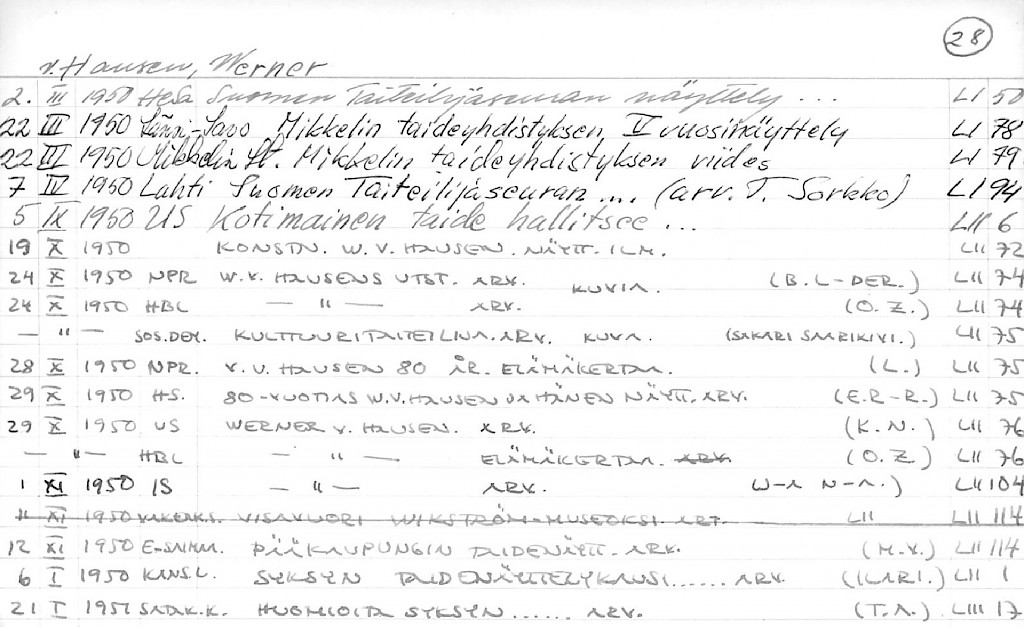 28
v. Hausen, Werner
2. III 1950 HeSa Suomen Taiteilijaseuran näyttely ... LI 50
22 III 1950 Länsi-Savo Mikkelin taideyhdistyksen V vuosinäyttely LI 78
22 III 1950 Mikkelin St. Mikkelin taideyhdistyksen viides LI 79
7 IV 1950 Lahti Suomen Taiteilijaseuran ... (arv. T. Sorkko) LI 94
5 IX 1950 US Kotimainen taide hallitsee ... LII 6
19 X 1950 KONSTN. W. V. HAUSEN. NÄYTT. ILM. LII 72
24 X 1950 NPR W. V. HAUSENS UTST. ARV. KUVIA. (B. L-DER.) LII 74
24 X 1950 HBL — " — ARV. (O. Z.) LII 74
— " — SOS.DEM. KULTTUURITAITEILIJA. ARV. KUVA. (SAKARI SAARIKIVI.) LII 75
28 X 1950 NPR. V. V. HAUSEN 80 ÅR. ELÄMÄKERTAA. (L.) LII 75
29 X 1950 HS. 80-VUOTIAS W.V.HAUSEN JA HÄNEN NÄYTT. ARV. (E.R-R.) LII 75
29 X 1950 US WERNER V. HAUSEN. ARV. (K.N.) LII 76
— " — HBL — " — ELÄMÄKERTAA. ARV. (O.Z.) LII 76
1 XI 1950 IS — " — ARV. W-A N-A.) LII 104
11 XI 1950 VISAVUORI WIKSTRÖM-MUSEOKSI ART. LII LII 114
12 XI 1950 E-SAIMA. PÄÄKAUPUNGIN TAIDENÄYTT. ARV. (M.V.) LII 114
6 I 1950 KANS.L. SYKSYN TAIDENÄYTTELYKAUSI...... ARV. (ILARI.) LII 1
21 I 1951 SATAK.K. HUOMIOITA SYKSYN ...... ARV. (T.A.) LIII 17